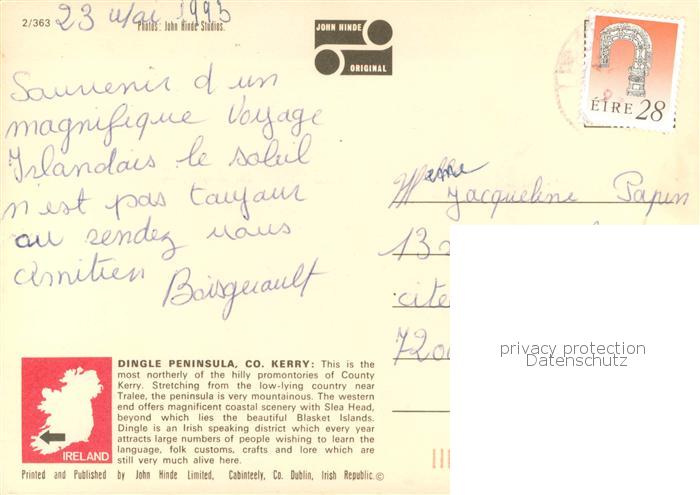 2/363
23 mai 1995
Photos: John Hinde Studios.
JOHN HINDE
ORIGINAL
ÉIRE 28
Souvenir d'un
magnifique Voyage
Irlandais le soleil
n'est pas toujour
au rendez vous
Amitien
Boisguault
Jacqueline Papin
13
cite
720
privacy protection
Datenschutz
DINGLE PENINSULA, CO. KERRY: This is the
most northerly of the hilly promontories of County
Kerry. Stretching from the low-lying country near
Tralee, the peninsula is very mountainous. The western
end offers magnificent coastal scenery with Slea Head,
beyond which lies the beautiful Blasket Islands.
Dingle is an Irish speaking district which every year
attracts large numbers of people wishing to learn the
language, folk customs, crafts and lore which are
still very much alive here.
IRELAND
Printed and Published by John Hinde Limited, Cabinteely, Co. Dublin, Irish Republic.©